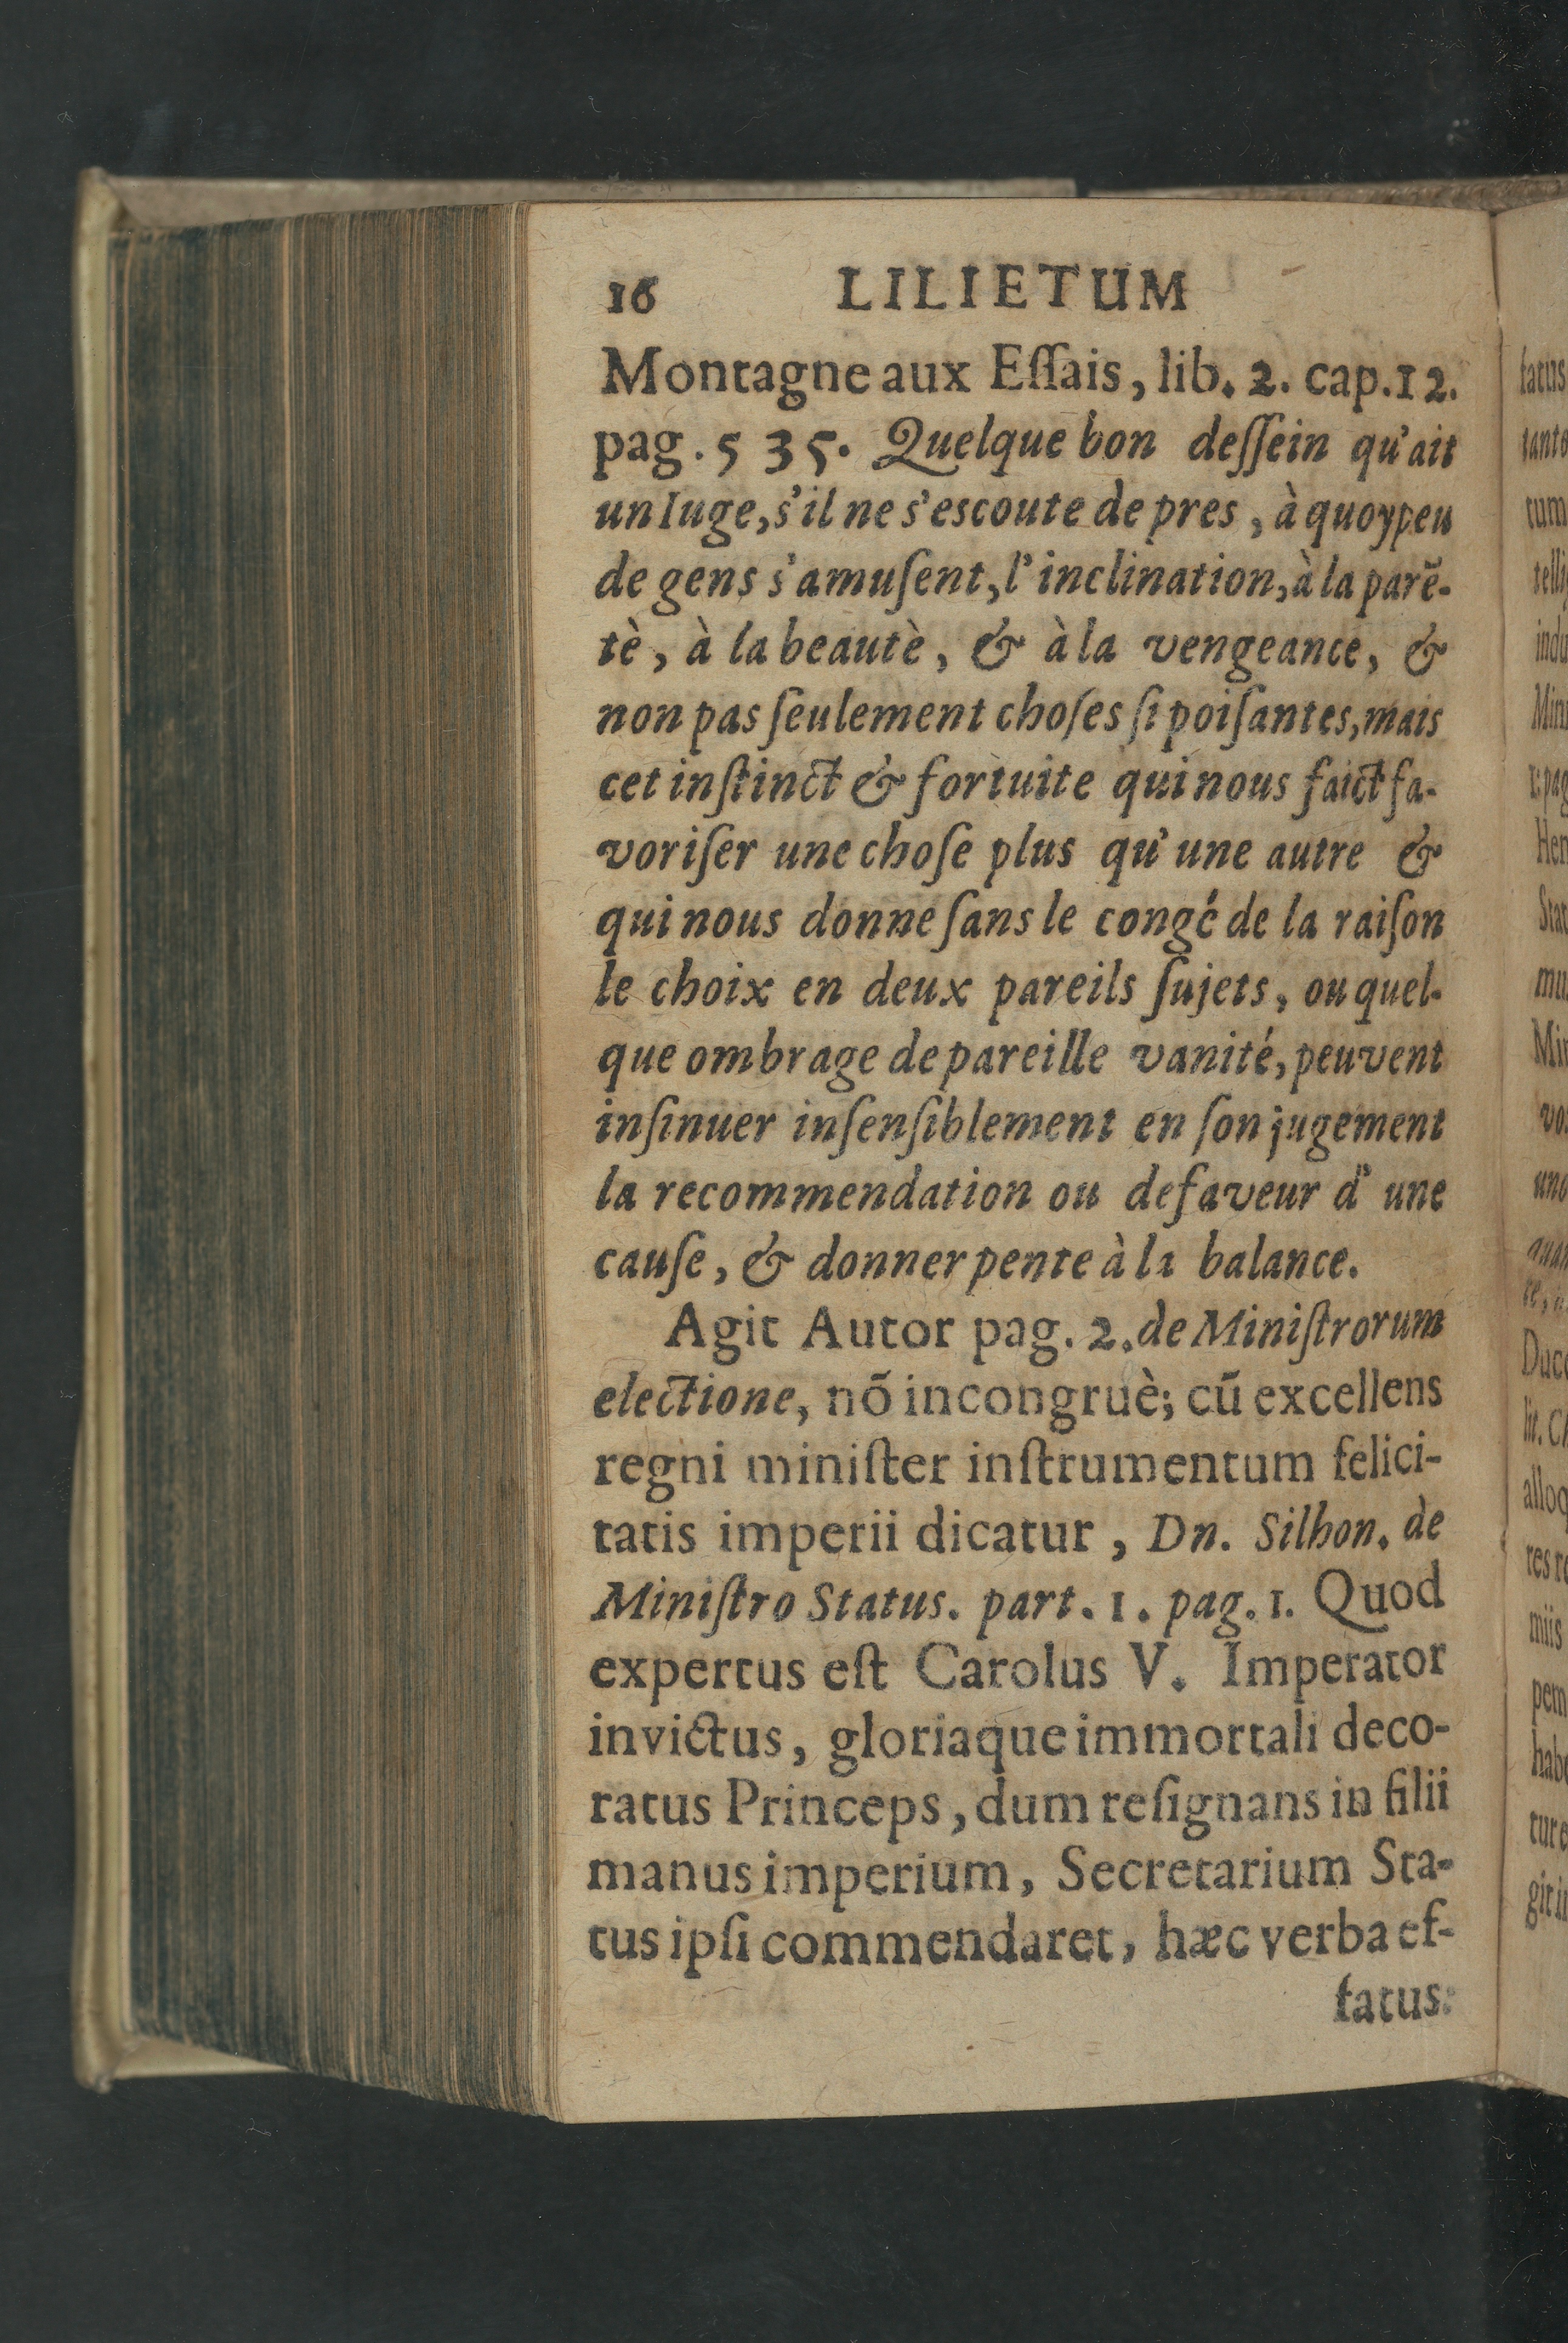 16 LILIETUM
Montagne aux Eſſais, lib. 2. cap. 12.
pag. 535. Quelque bon deſſein qu'ait
un Iuge, s'il ne s'escoute de pres, à quoy peu
de gens s'amuſent, l'inclination, à la parẽ-
tè, à la beautè, & à la vengeance, &
non pas ſeulement choſes ſi poiſantes, mais
cet inſtinct & fortuite qui nous faict fa-
voriſer une choſe plus qu'une autre &
qui nous donne ſans le congé de la raiſon
le choix en deux pareils ſujets, ou quel-
que ombrage de pareille vanité, peuvent
inſinuer inſenſiblement en ſon jugement
la recommendation ou defaveur d' une
cauſe, & donner pente à la balance.
Agit Autor pag. 2. de Miniſtrorum
electione, nõ incongruè; cũ excellens
regni miniſter inſtrumentum felici-
tatis imperii dicatur, Dn. Silhon. de
Miniſtro Status. part. 1. pag. 1. Quod
expertus eſt Carolus V. Imperator
invictus, gloriaque immortali deco-
ratus Princeps, dum reſignans in filii
manus imperium, Secretarium Sta-
tus ipſi commendaret, hæc verba ef-
fatus: